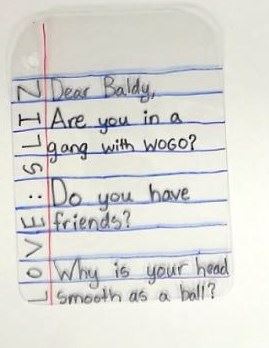 Dear Baldy,
Are you in a
gang with WOGO?
Do you have
friends?
Why is your head
smooth as a ball?
LOVE: SLIZ